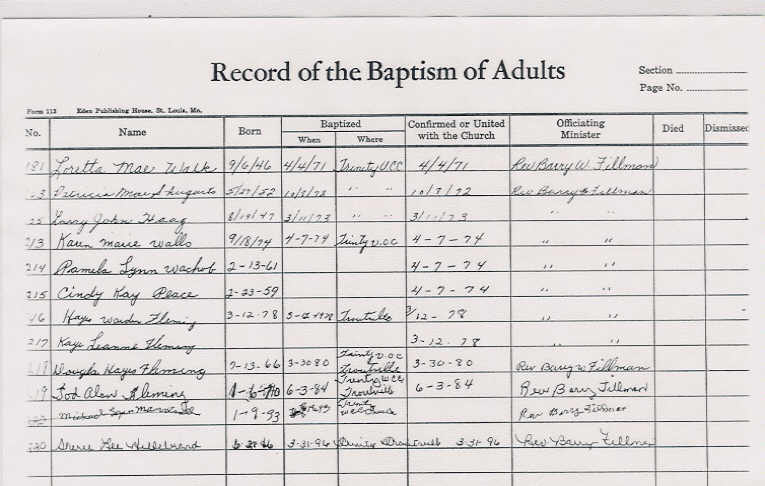 Record of the Baptism of Adults
Section
Page No.
Form 113 Eden Publishing House, St. Louis, Mo.
No. Name Born Baptized Confirmed or United with the Church Officiating Minister Died Dismissed
When Where
Loretta Mae Walk 9/6/46 4/4/71 Trinity UCC 4/4/71 Rev Barry W. Fillman
Patricia Mae Shugarts 5/27/52 10/8/72 " " 10/8/72 Rev Barry W Fillman
Larry John Haag 3/11/73 " " 3/11/73 " "
213 Karen Marie Walls 9/18/74 4-7-74 Trinty U.CC 4-7-74 " "
214 Pamela Lynn Wachob 2-13-61 4-7-74 " "
215 Cindy Kay Peace 2-23-59 4-7-74 " "
Hays Fleming 3-12-78 Troutville 3/12-78 " "
217 Kaye Leanne Fleming 3-12-78
Douglas Hayes Fleming 7-13-66 3-30-80 Trinity U.CC Troutville 3-30-80 Rev Barry W Fillman
Tod Alan Fleming 6-3-84 Trinty UCC Troutville 6-3-84 Rev Barry Fillman
Michael 1-9-93 Rev Barry Fillman
Sheree Lee Hildebrand 3-31-96 Trinity Troutville 3-31-96 Rev Barry Fillman